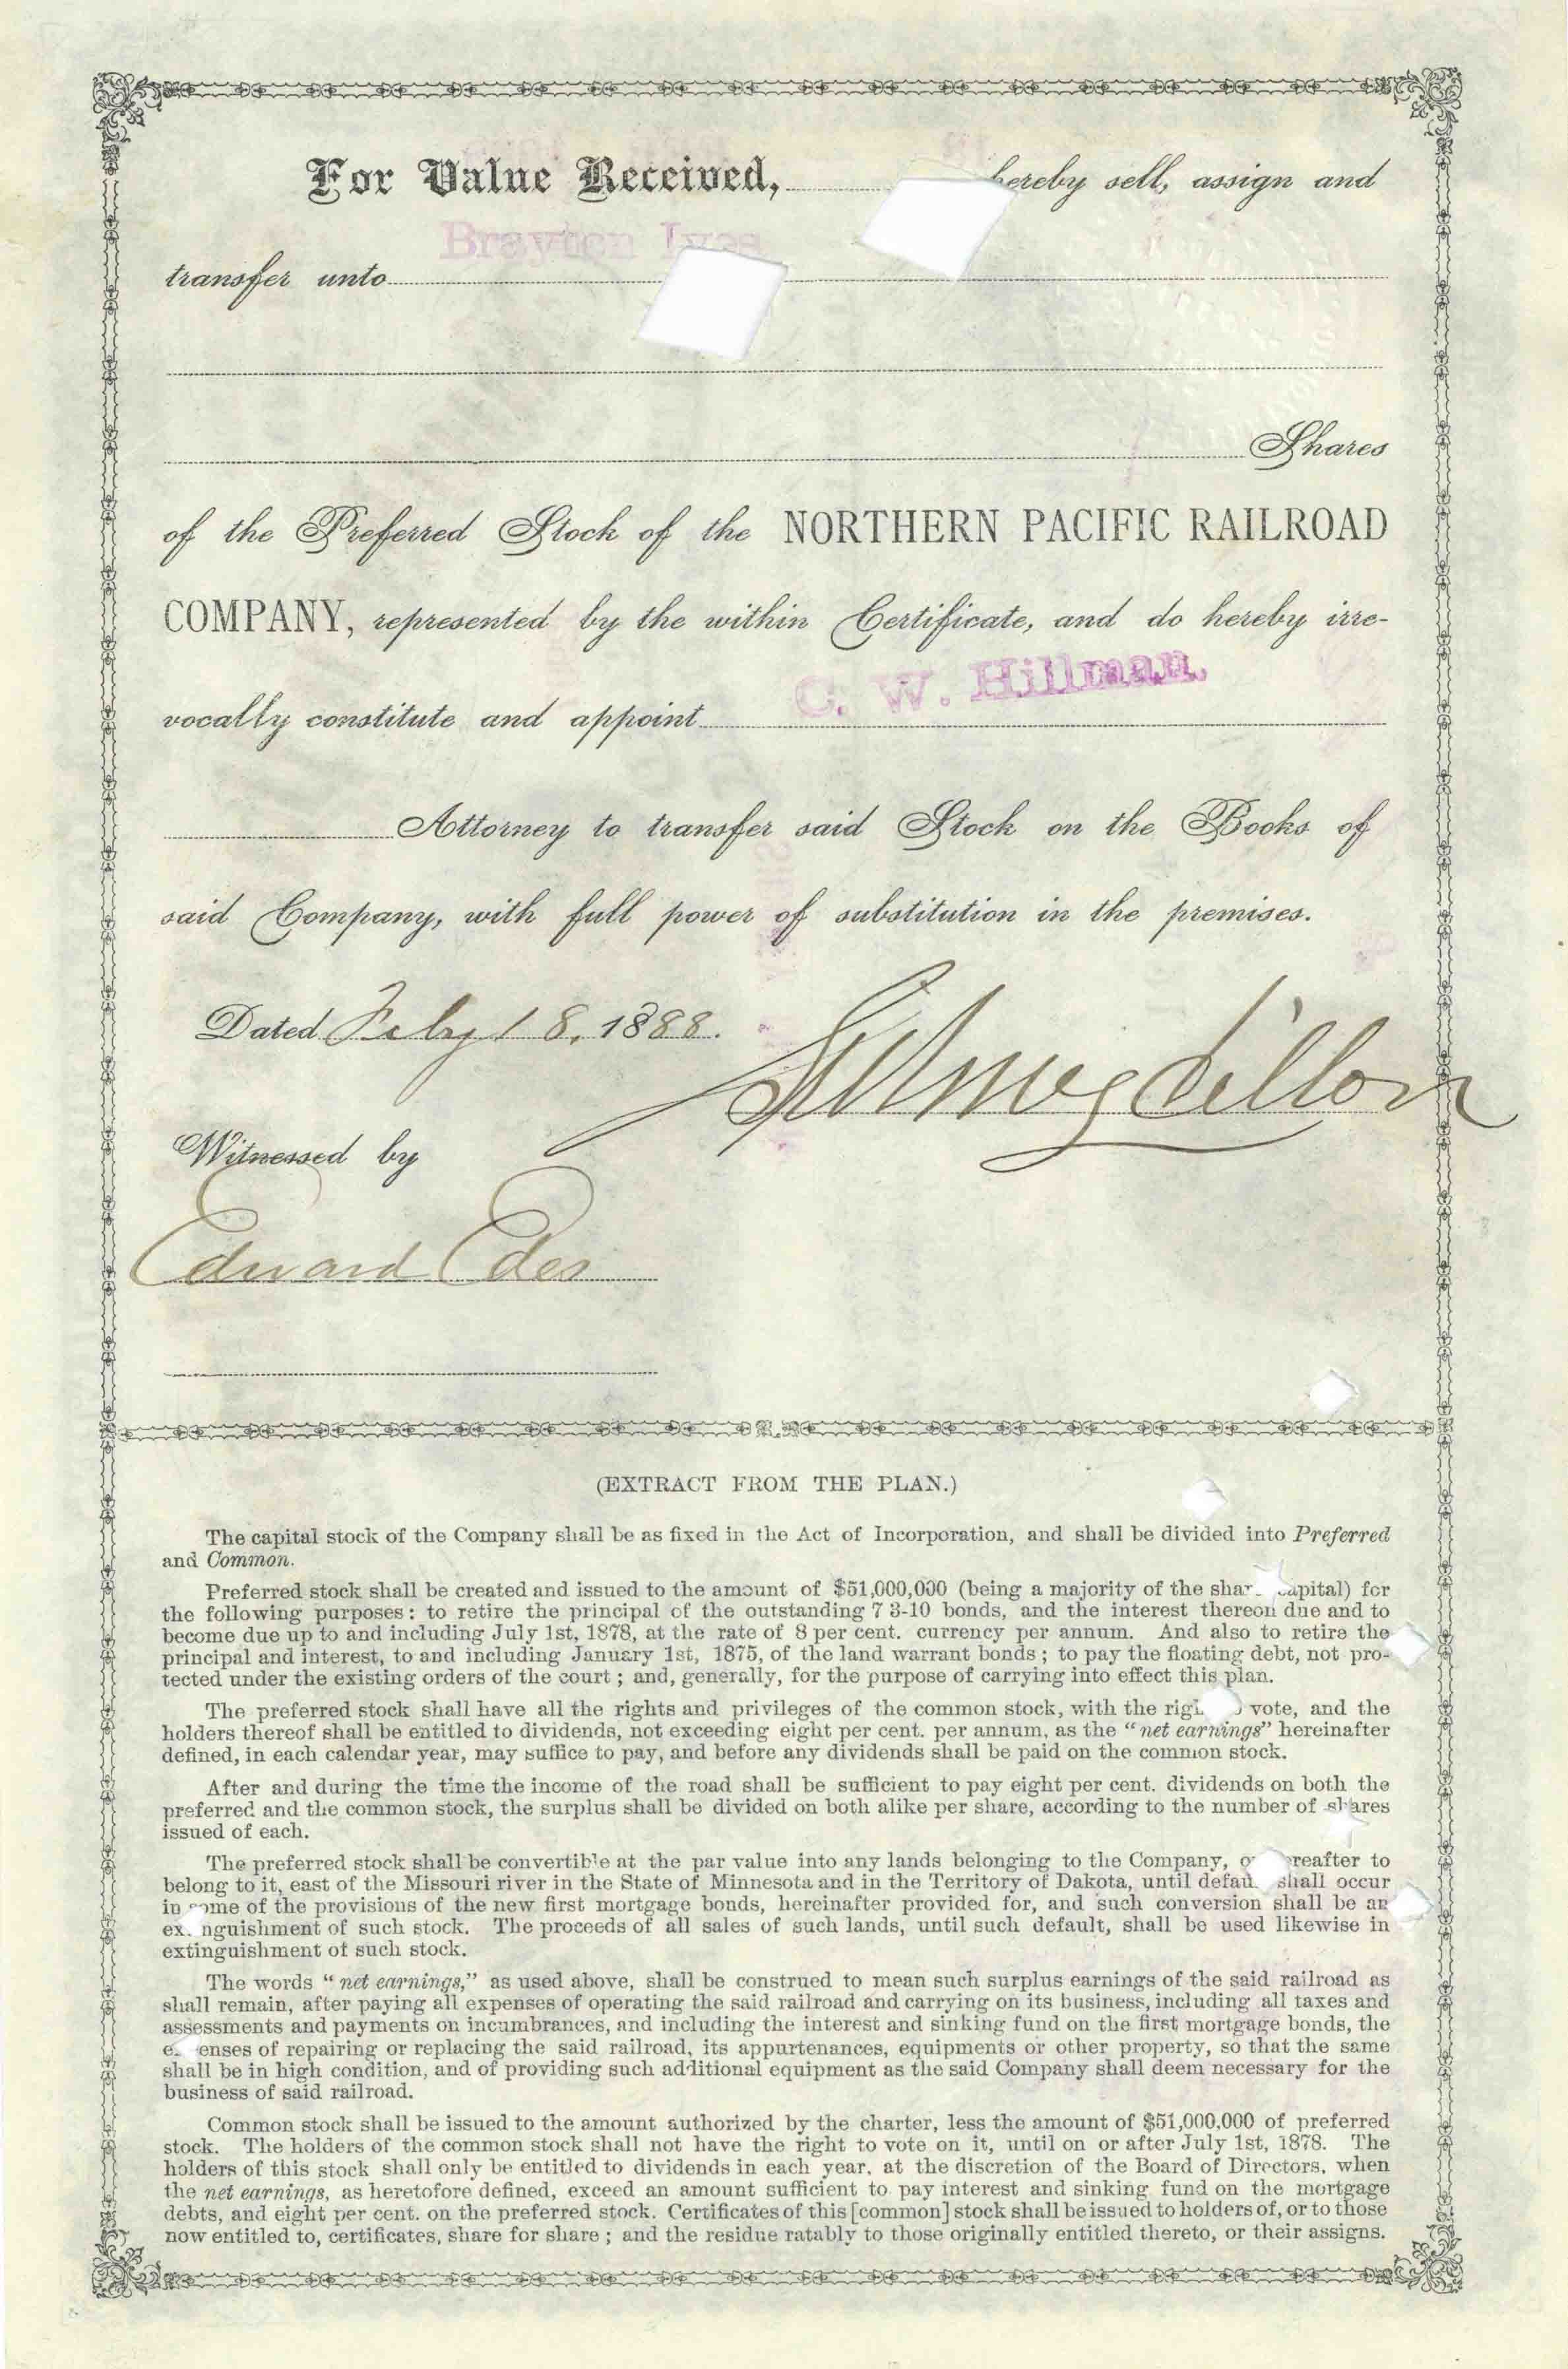 For Value Received, hereby sell, assign and
Brayton Ives
transfer unto
Shares
of the Preferred Stock of the NORTHERN PACIFIC RAILROAD
COMPANY, represented by the within Certificate, and do hereby irre-
C. W. Hillman.
vocally constitute and appoint
Attorney to transfer said Stock on the Books of
said Company, with full power of substitution in the premises.
Dated Feby 18, 1888.
Sidney Dillon
Witnessed by
Edward Edes
(EXTRACT FROM THE PLAN.)
The capital stock of the Company shall be as fixed in the Act of Incorporation, and shall be divided into Preferred
and Common.
Preferred stock shall be created and issued to the amount of $51,000,000 (being a majority of the apital) for
the following purposes: to retire the principal of the outstanding 7 3-10 bonds, and the interest thereon due and to
become due up to and including July 1st, 1878, at the rate of 8 per cent. currency per annum. And also to retire the
principal and interest, to and including January 1st, 1875, of the land warrant bonds; to pay the floating debt, not pro-
tected under the existing orders of the court; and, generally, for the purpose of carrying into effect this plan.
The preferred stock shall have all the rights and privileges of the common stock, with the vote, and the
holders thereof shall be entitled to dividends, not exceeding eight per cent. per annum, as the "net earnings" hereinafter
defined, in each calendar year, may suffice to pay, and before any dividends shall be paid on the common stock.
After and during the time the income of the road shall be sufficient to pay eight per cent. dividends on both the
preferred and the common stock, the surplus shall be divided on both alike per share, according to the number of shares
issued of each.
The preferred stock shall be convertible at the par value into any lands belonging to the Company, reafter to
belong to it, east of the Missouri river in the State of Minnesota and in the Territory of Dakota, until defau shall occur
in some of the provisions of the new first mortgage bonds, hereinafter provided for, and such conversion shall be an
ex nguishment of such stock. The proceeds of all sales of such lands, until such default, shall be used likewise in
extinguishment of such stock.
The words "net earnings," as used above, shall be construed to mean such surplus earnings of the said railroad as
shall remain, after paying all expenses of operating the said railroad and carrying on its business, including all taxes and
assessments and payments on incumbrances, and including the interest and sinking fund on the first mortgage bonds, the
e enses of repairing or replacing the said railroad, its appurtenances, equipments or other property, so that the same
shall be in high condition, and of providing such additional equipment as the said Company shall deem necessary for the
business of said railroad.
Common stock shall be issued to the amount authorized by the charter, less the amount of $51,000,000 of preferred
stock. The holders of the common stock shall not have the right to vote on it, until on or after July 1st, 1878. The
holders of this stock shall only be entitled to dividends in each year, at the discretion of the Board of Directors, when
the net earnings, as heretofore defined, exceed an amount sufficient to pay interest and sinking fund on the mortgage
debts, and eight per cent. on the preferred stock. Certificates of this [common] stock shall be issued to holders of, or to those
now entitled to, certificates, share for share; and the residue ratably to those originally entitled thereto, or their assigns.